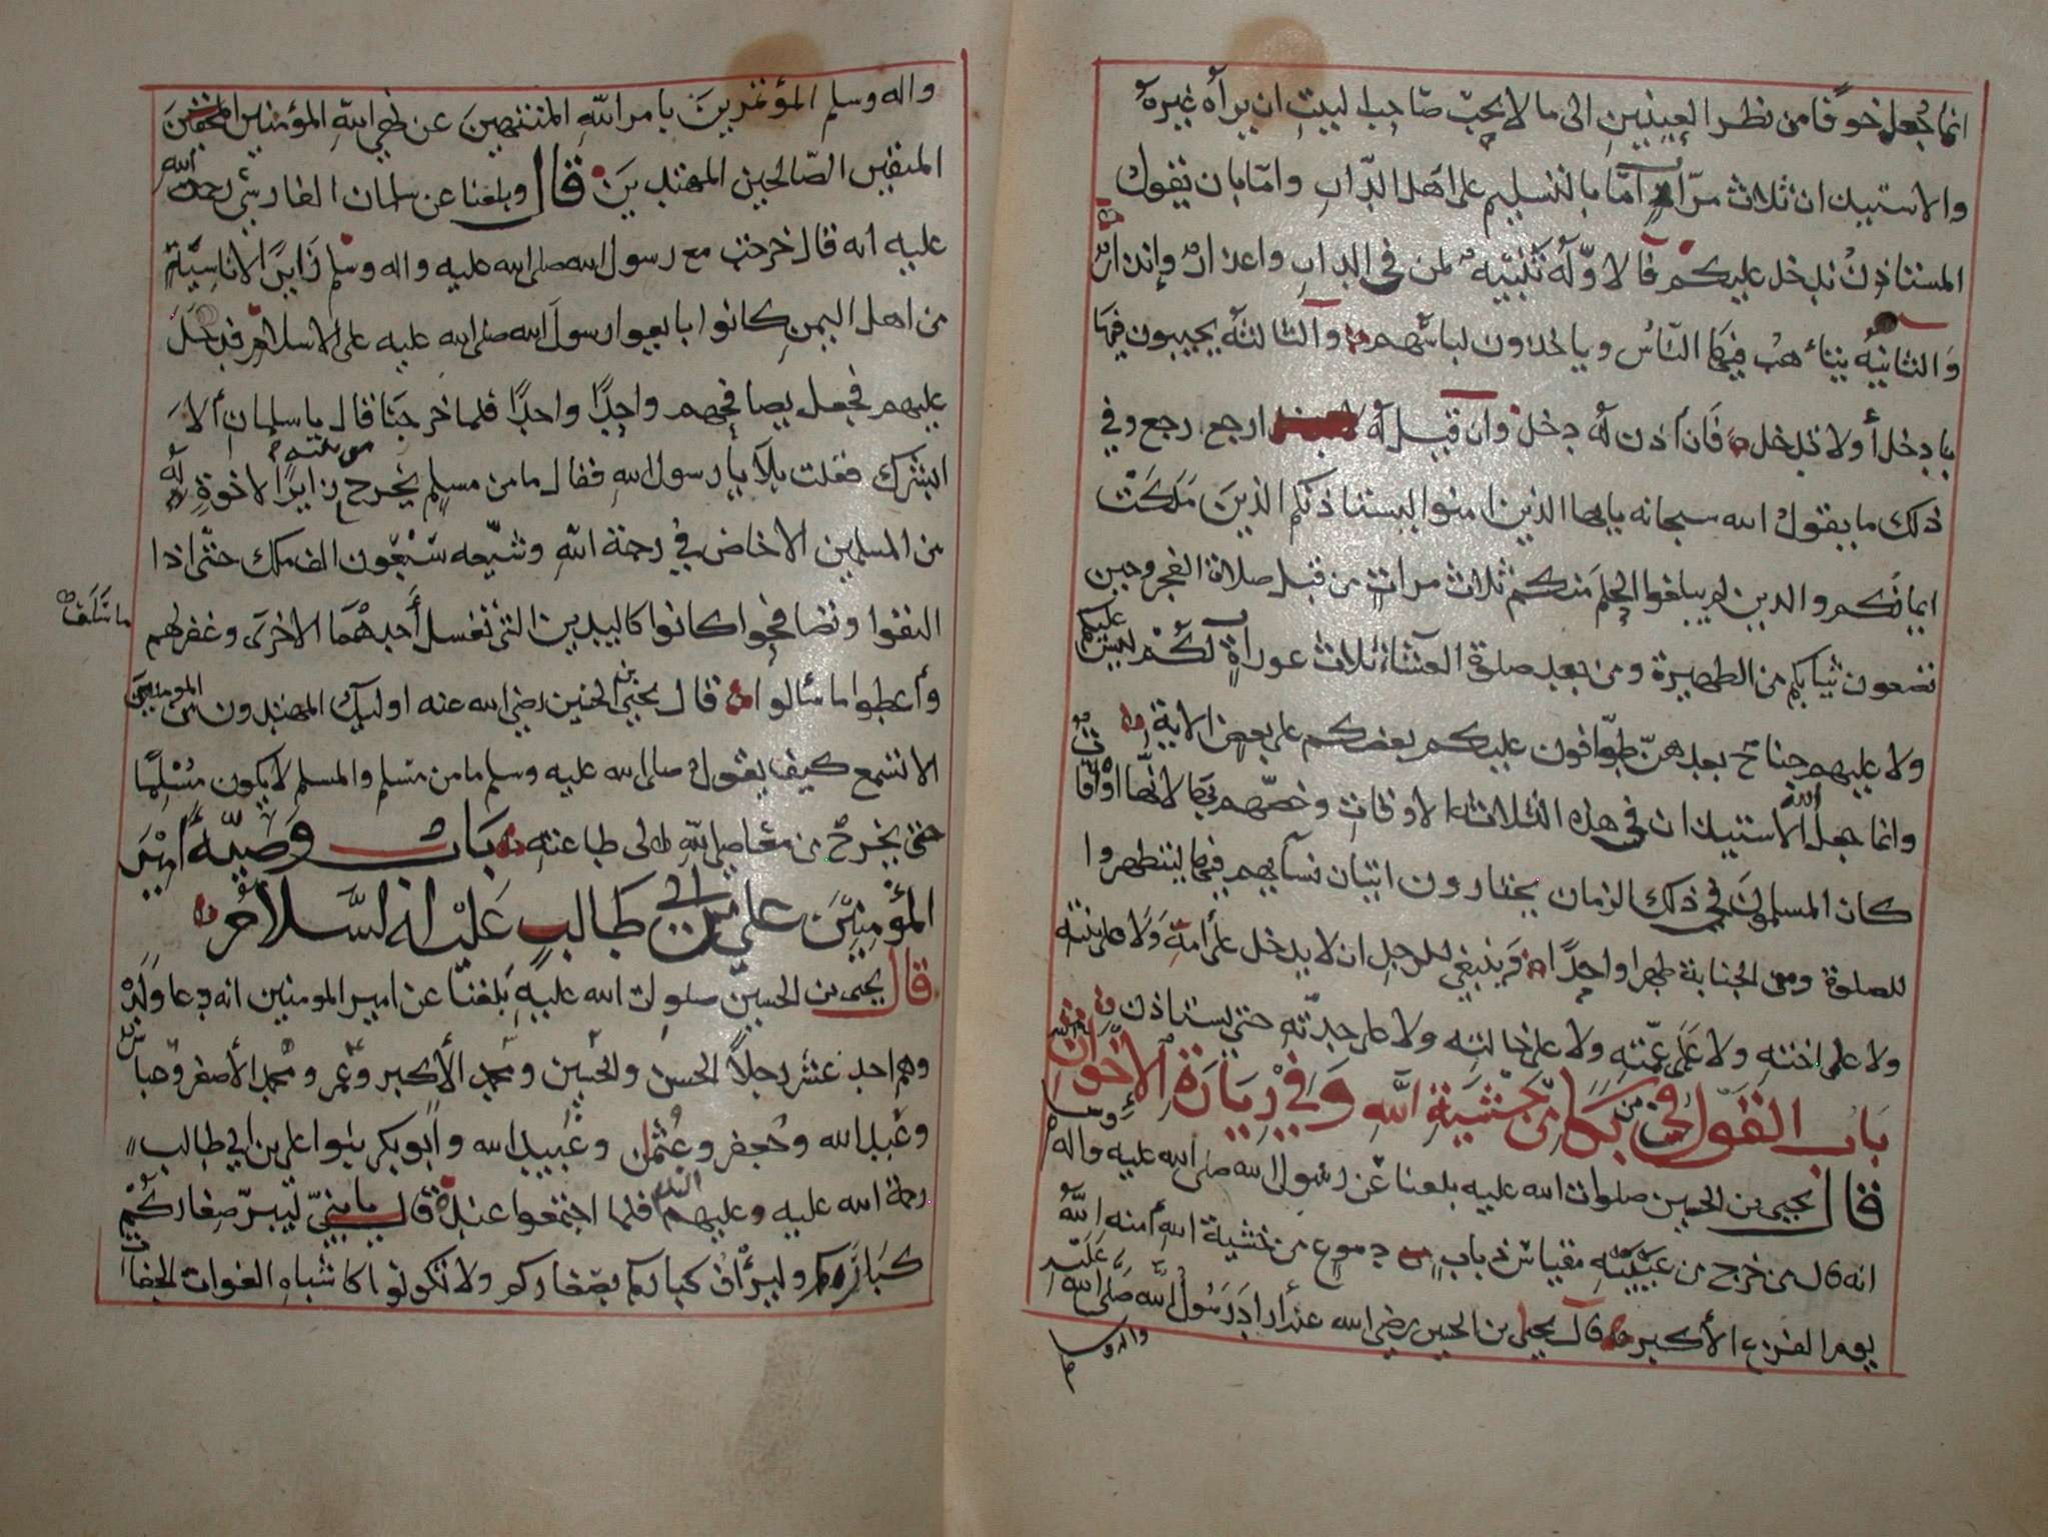 انما جعل خوفا من نظر العينين الى ما لا يحب صاحب البيت ان يراه غيره
والاستيذان ثلاث مرات اما بالتسليم على اهل الدار واما بان تقول
المستاذن ندخل عليكم فالاوله تنبيه لمن في الدار واعذار وإنذار
والثانيه يتاهب فيها الناس وياخذون لباسهم والثالثه يجيبون فيها
بادخل أو لا تدخل فان أذن له دخل وان قيل له ارجع رجع وفي
ذلك ما يقول الله سبحانه يايها الذين امنوا ليستاذنكم الذين ملكت
ايمانكم والذين لم يبلغوا الحلم منكم ثلاث مرات من قبل صلاة الفجر وحين
تضعون ثيابكم من الظهيرة ومن بعد صلوة العشاء ثلاث عورات لكم ليس عليكم
ولا عليهم جناح بعدهن طوافون عليكم بعضكم على بعض الاية
وانما جعل الله الاستيذان في هذه الثلاثة الاوقات وخصهم بها لانها اوقات
كان المسلمون في ذلك الزمان يختارون اتيان نسآيهم فيها ليتطهروا
للصلوة ومن الجنابة طهرا واحدا وينبغي للرجل ان لا يدخل على أمه ولا على بنته
ولا على اخته ولا على عمته ولا على خالته ولا على جدته حتى يستاذن
باب القول في من بكا من خشية الله وفي زيارة الاخوان
قال يحيى بن الحسين صلوات الله عليه بلغنا عن رسول الله صلى الله عليه واله وسلم
انه قال من خرج من عينيه مقياس ذباب دموع من خشية الله أمنه الله
يوم الفزع الأكبر قال يحيى بن الحسين رضي الله عنه أراد رسول الله صلى الله عليه
واله وسلم
واله وسلم المؤتمرين بامر الله المنتهين عن نهي الله المؤمنين
المتقين الصالحين المهتدين قال وبلغنا عن سلمان الفارسي رحمة الله
عليه انه قال خرجت مع رسول الله صلى الله عليه واله وسلم زايرا لاناس
من اهل اليمن كانوا بايعوا رسول الله صلى الله عليه على الاسلام فدخل
عليهم فجعل يصافحهم واحدا واحدا فلما خرجنا قال يا سلمان ألا
ابشرك فقلت بلا يا رسول الله فقال ما من مسلم يخرج من بيته زايرا لاخوة له
من المسلمين الا خاض في رحمة الله وشيعه سبعون الف ملك حتى اذا
التقوا وتصافحوا كانوا كاليدين التي تغسل أحدهما الاخرى وغفر لهم
ما سلف
وأعطوا ما سالوا قال يحيى بن الحسين رضي الله عنه اوليك المهتدون من المومنين
الا تسمع كيف يقول صلى الله عليه وسلم ما من مسلم والمسلم لا يكون مسلما
حتى يخرج من معاصي الله الى طاعته باب وصية أمير
المؤمنين علي بن ابي طالب عليه السلام
قال يحيى بن الحسين صلوات الله عليه بلغنا عن امير المومنين انه دعا ولده
وهم احد عشر رجلا الحسن والحسين ومحمد الأكبر وعمر ومحمد الأصغر وعباس
وعبد الله وجعفر وعثمان وعبيد الله وابو بكر بنوا علي بن ابي طالب
رحمة الله عليه وعليهم السلام فلما اجتمعوا عنده قال يا بني ليبر صغاركم
كباركم وليرأف كباركم بصغاركم ولا تكونوا كاشباه الغوات الجفاة